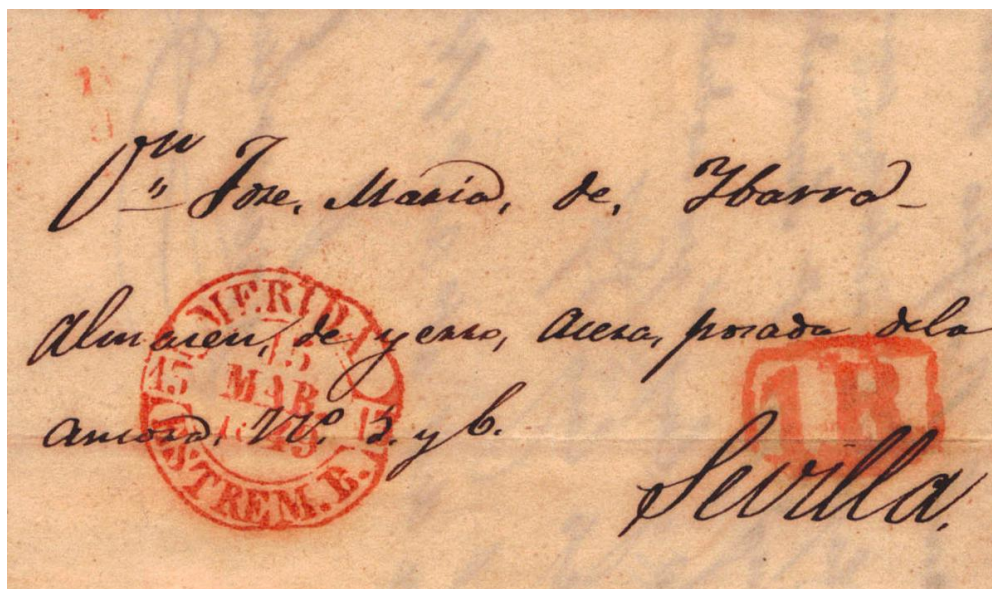 Dn Jose, Maria, de, Ybarra
Almacen, de yerro, Acera, posada dela
Amcora, No. 5. y 6.
Sevilla.
MERIDA
15
MAR
15
ESTREM. B.
1R.